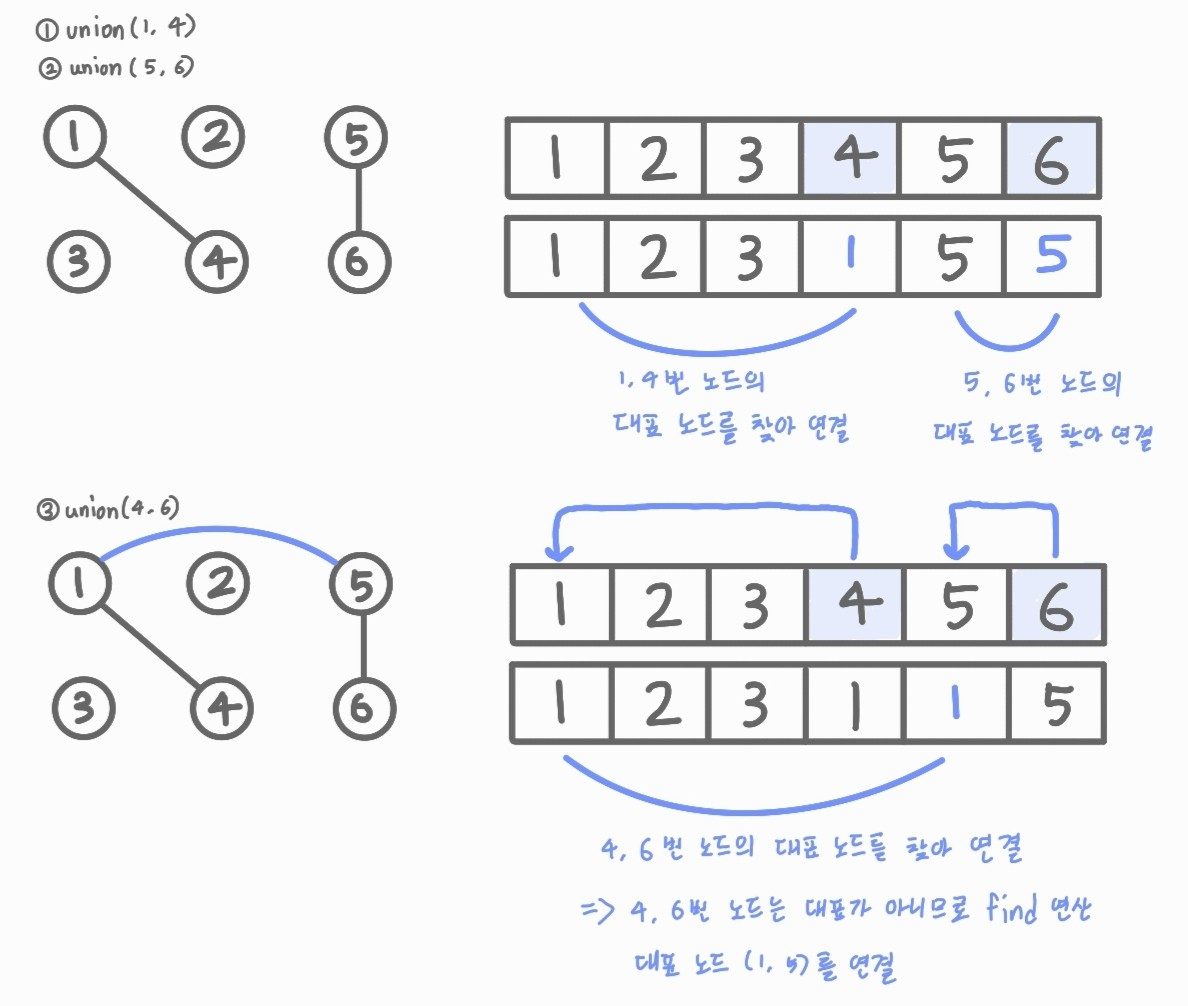 ① union(1, 4)
② union(5, 6)
1 2 5
3 4 6
1 2 3 4 5 6
1 2 3 1 5 5
1, 4번 노드의
대표 노드를 찾아 연결
5, 6번 노드의
대표 노드를 찾아 연결
③ union(4, 6)
1 2 5
3 4 6
1 2 3 4 5 6
1 2 3 1 1 5
4, 6번 노드의 대표 노드를 찾아 연결
=> 4, 6번 노드는 대표가 아니므로 find 연산
대표 노드 (1, 5)를 연결